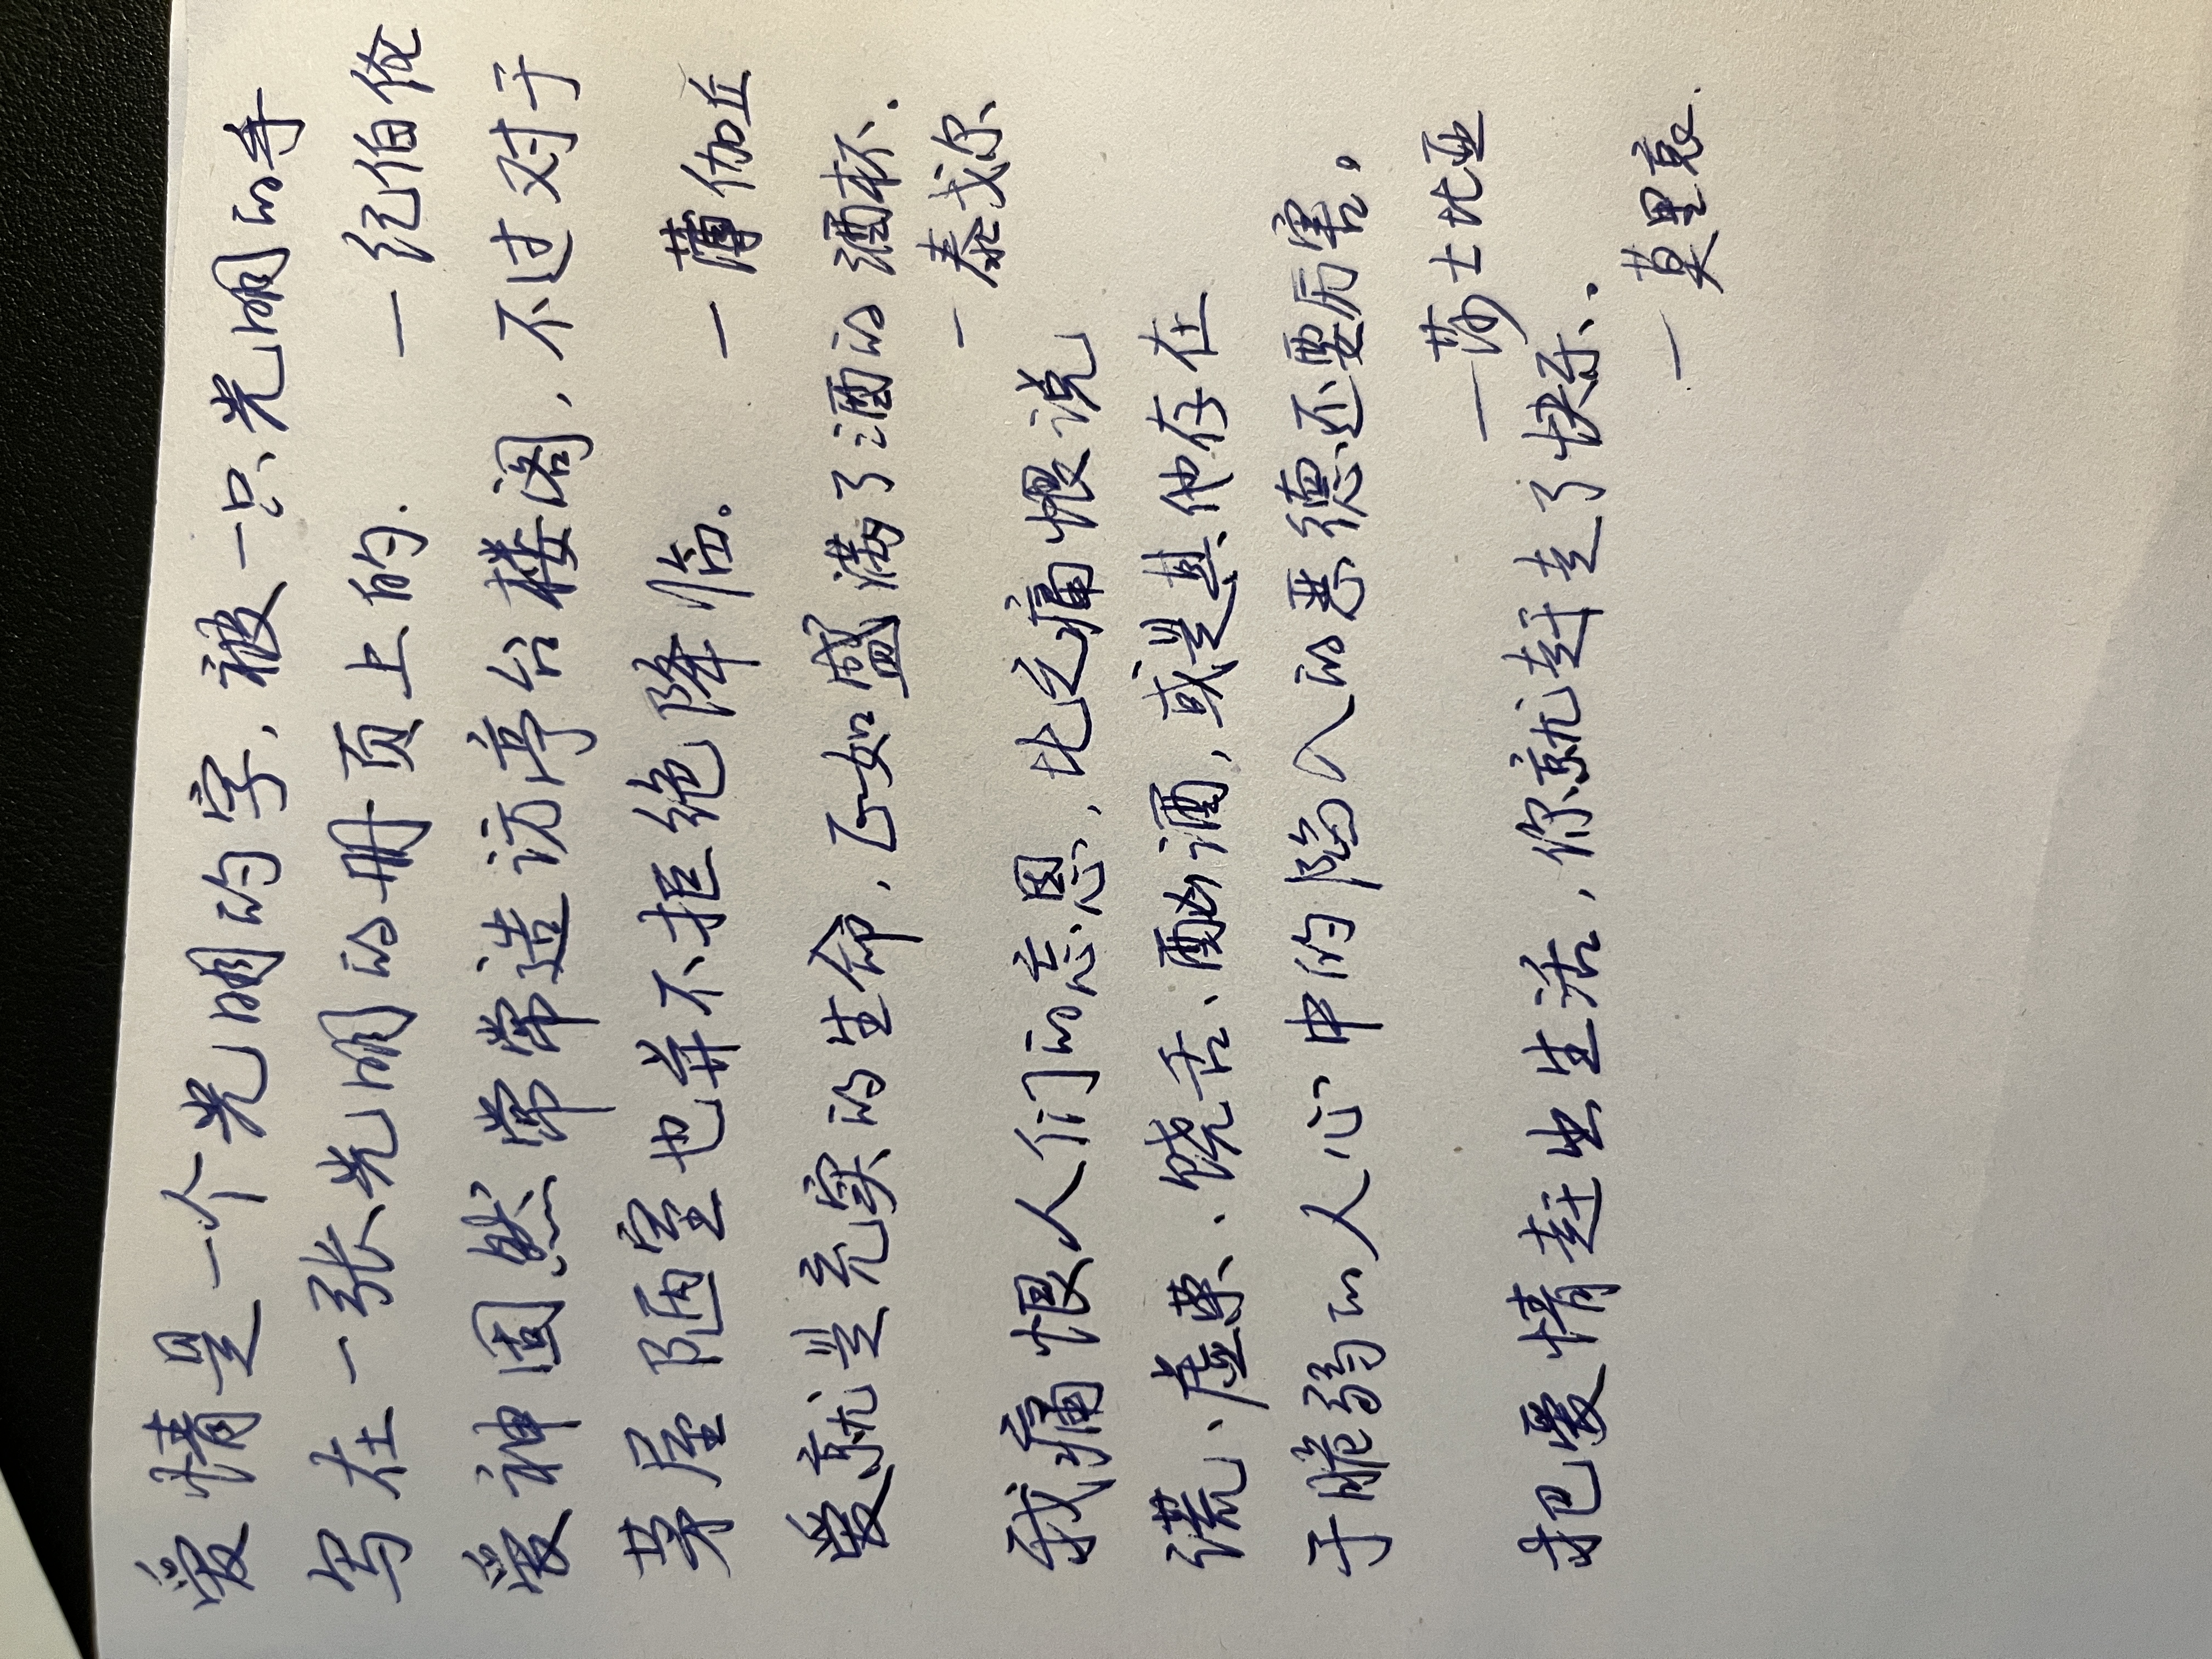 爱情是一个光明的字，被一只光明的手
写在一张光明的册页上的. —纪伯伦
爱神固然常常造访亭台楼阁，不过对于
茅屋陋室也并不拒绝降临。 —薄伽丘
爱就是充实的生命，正如盛满了酒的酒杯.
—泰戈尔
我痛恨人们的忘恩，比之痛恨说
谎、虚荣、饶舌、酗酒，或是其他存在
于脆弱的人心中的陷入的恶德还要厉害。
—莎士比亚
把爱情赶出生活，你就赶走了快乐。
—莫里哀.